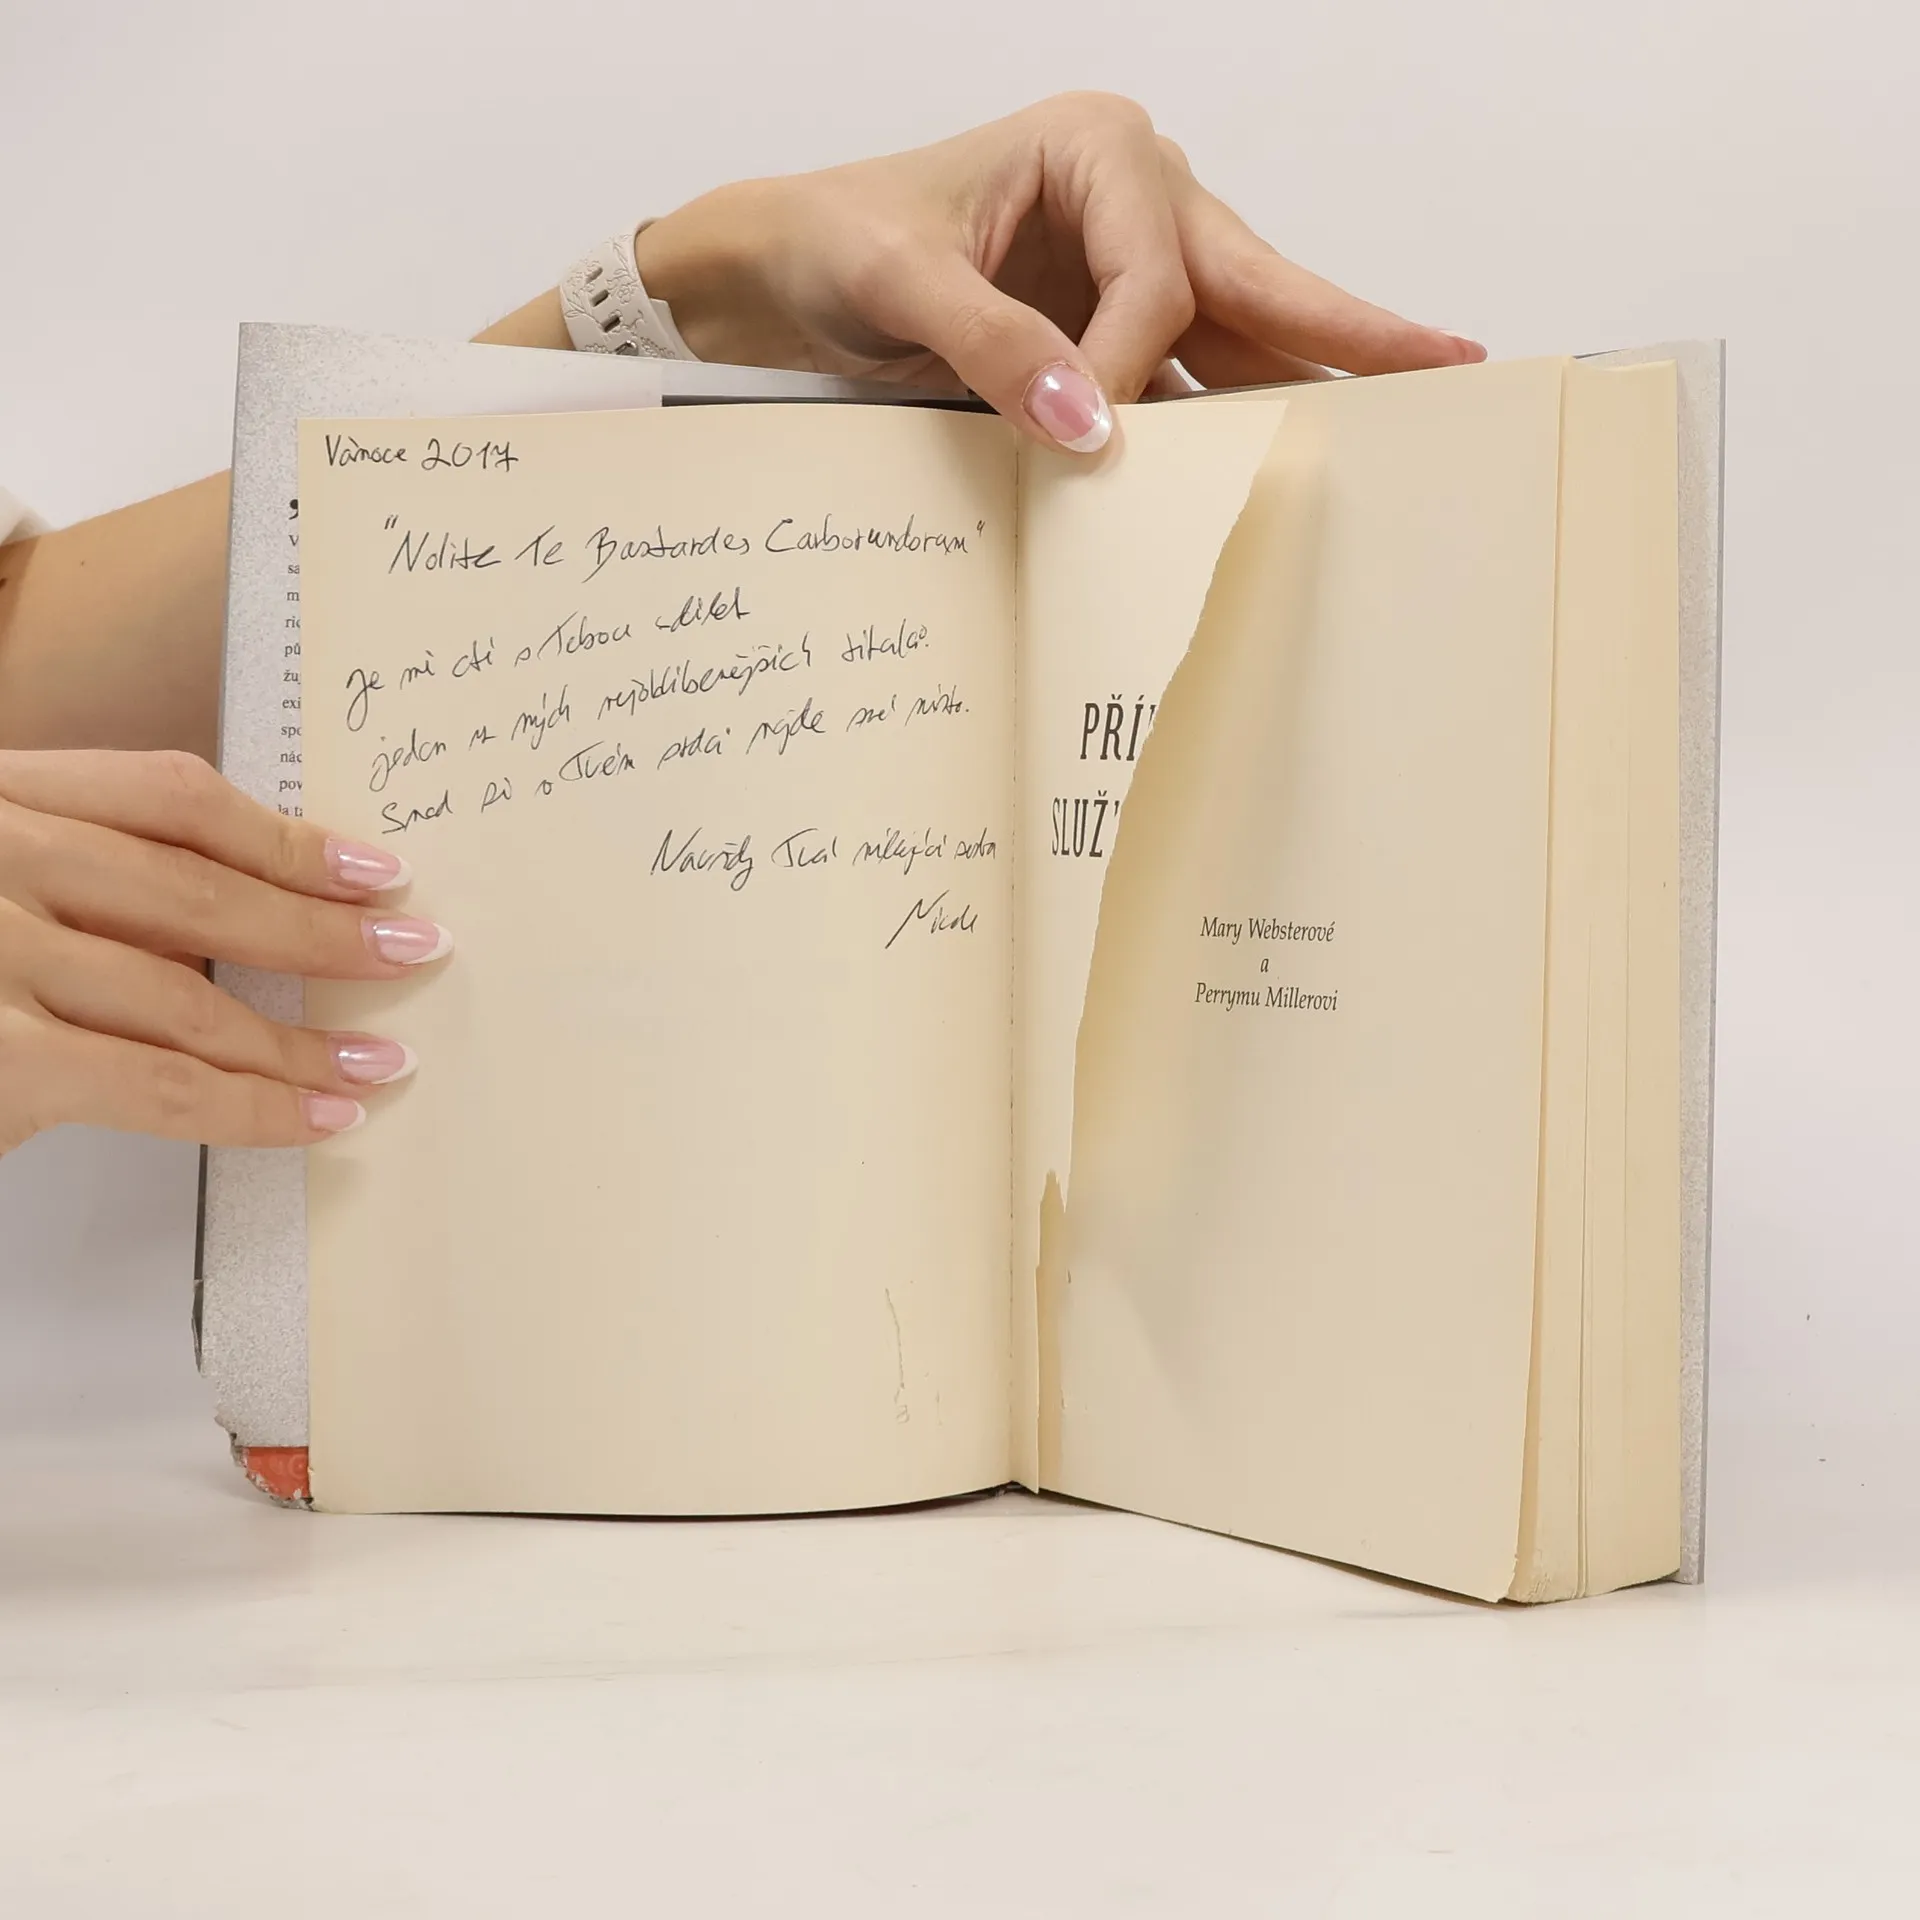 Vánoce 2017
"Nolite Te Bastardes Carborundorum"
Je mi ctí s Tebou sdílet
jeden z mých nejoblíbenějších titulů.
Snad si v Tvém srdci najde své místo.
Navždy Tvá milující sestra
Nicole
V
sa
m
ric
pů
žu
exi
spo
nác
pov
la ta
PŘÍ
SLUŽ
Mary Websterové
a
Perrymu Millerovi